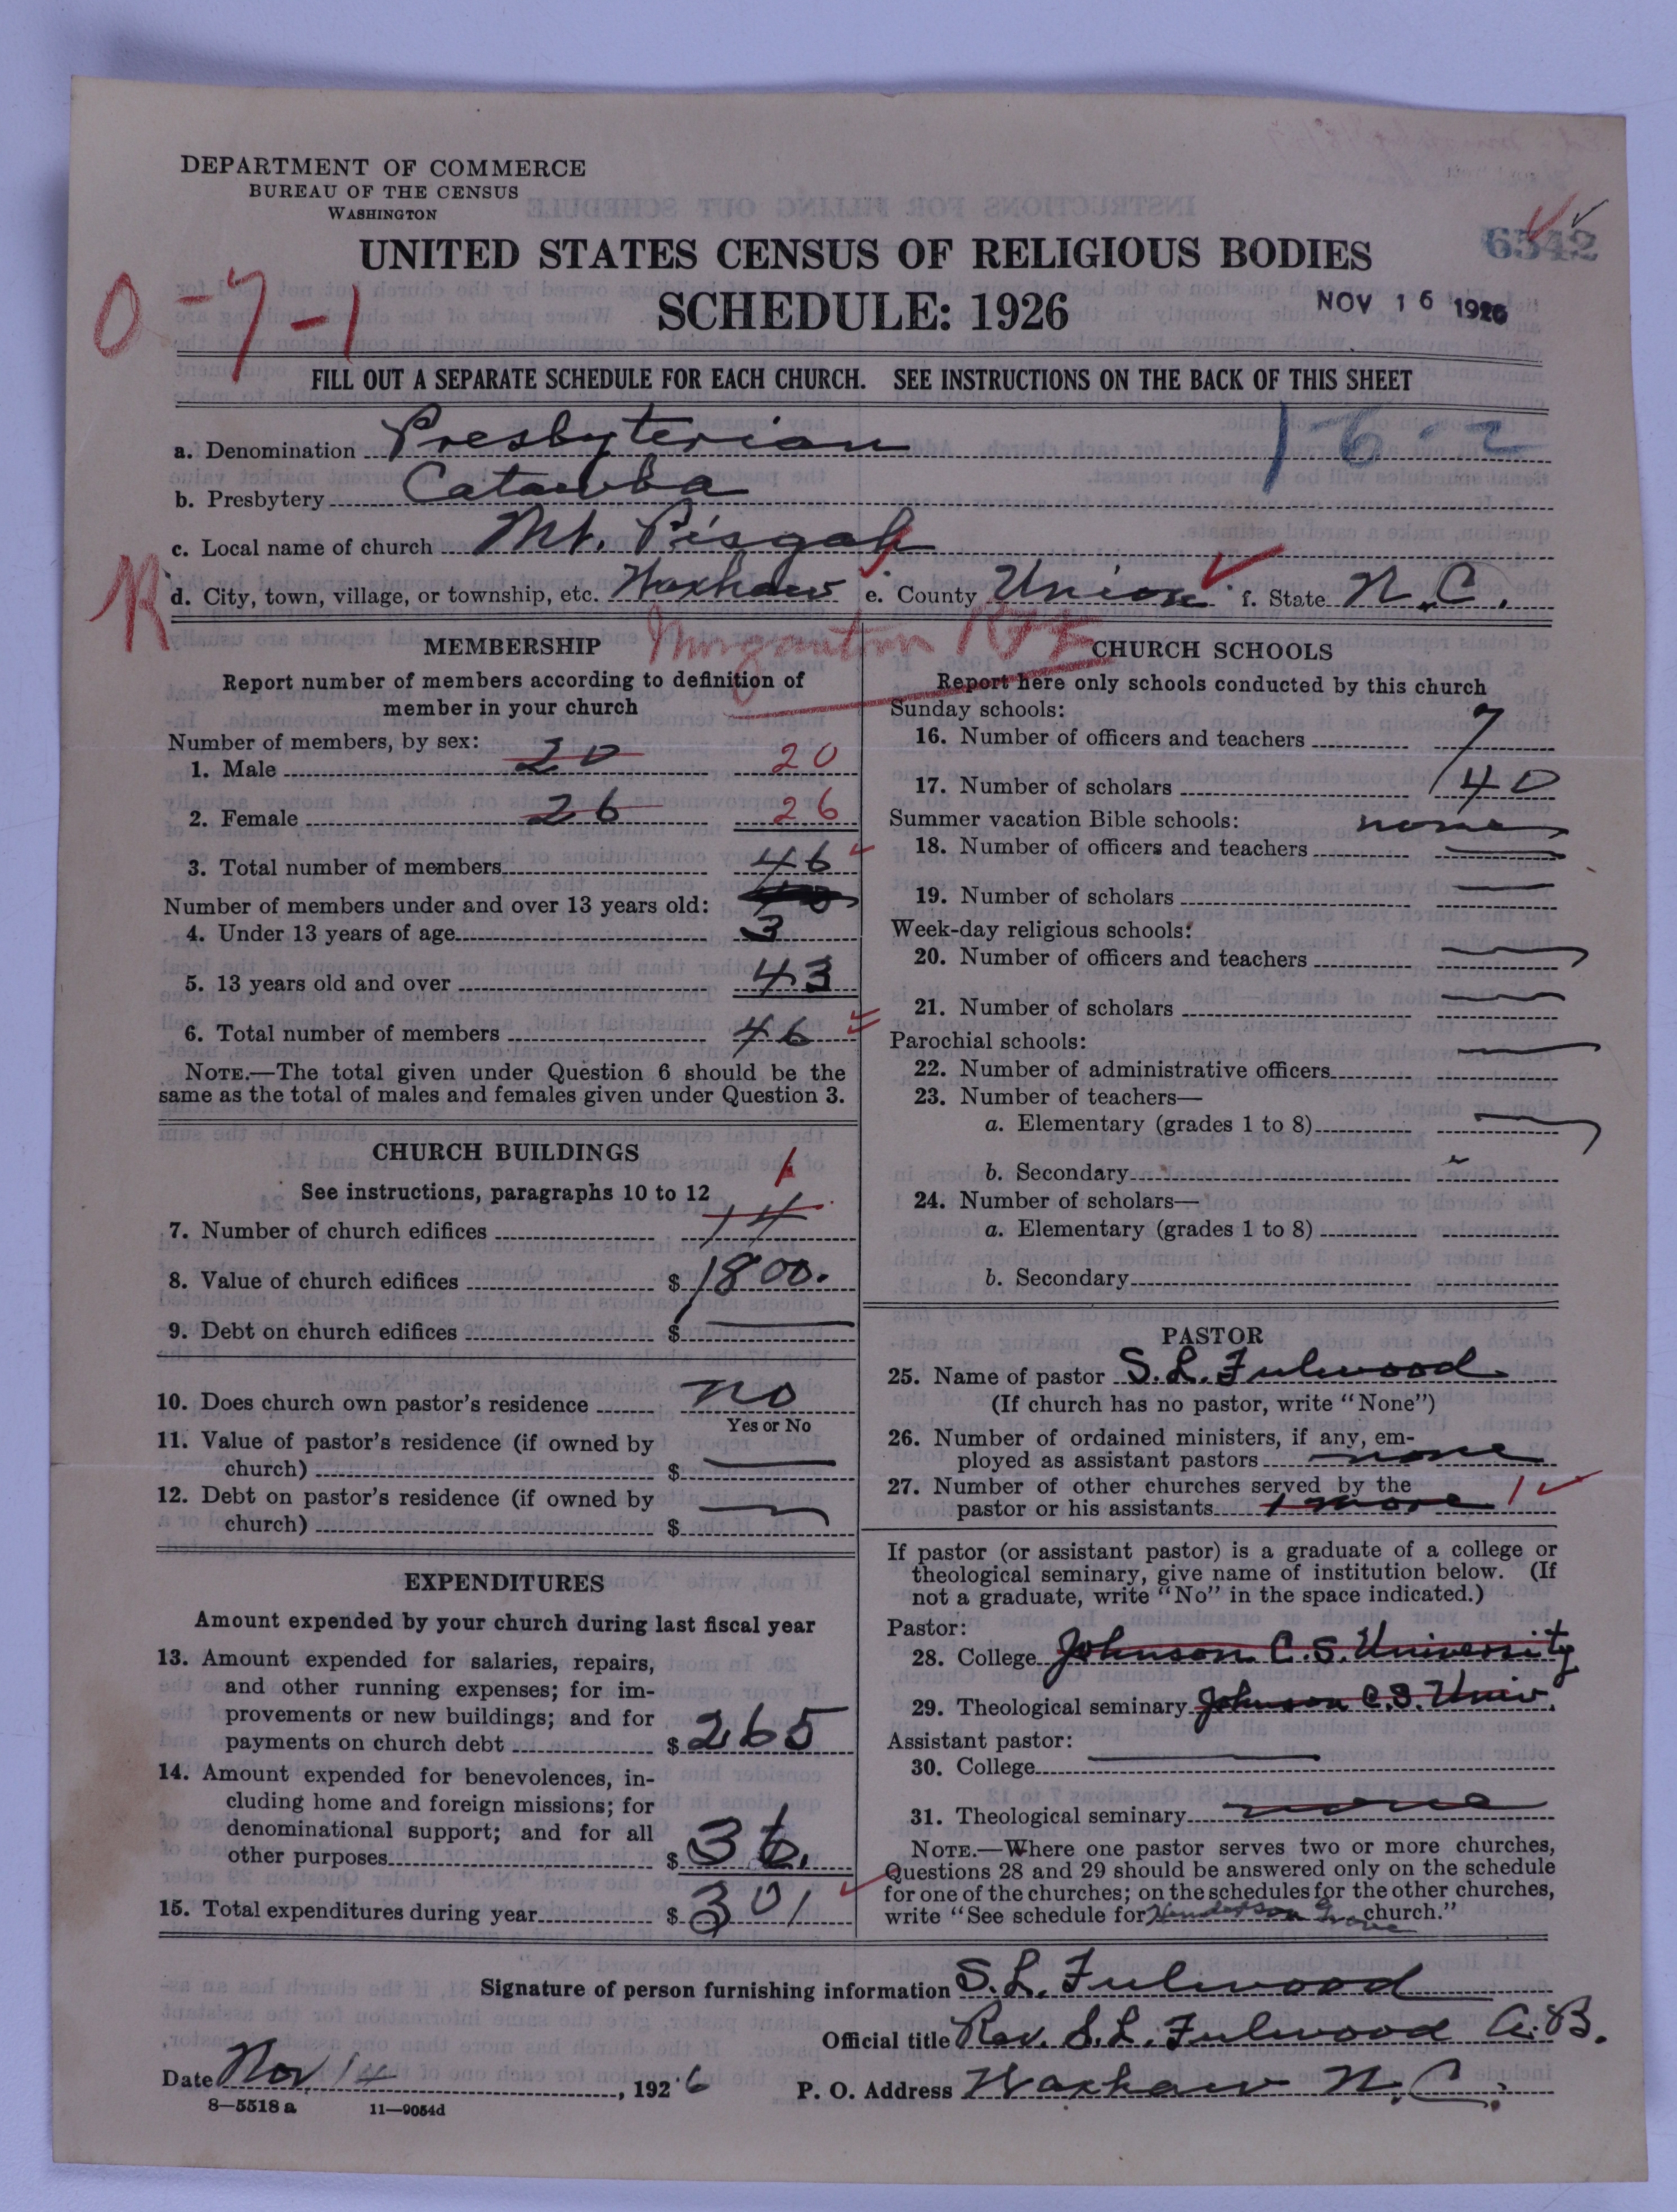 DEPARTMENT OF COMMERCE
BUREAU OF THE CENSUS
WASHINGTON
UNITED STATES CENSUS OF RELIGIOUS BODIES
6542
SCHEDULE: 1926
NOV 16 1926
0-7-1
FILL OUT A SEPARATE SCHEDULE FOR EACH CHURCH. SEE INSTRUCTIONS ON THE BACK OF THIS SHEET
1-6-2
a. Denomination Presbyterian
b. Presbytery Catawba
c. Local name of church Mt. Pisgah
R
d. City, town, village, or township, etc. Waxhaw e. County Union f. State N.C.
Morganton
MEMBERSHIP
Report number of members according to definition of
member in your church
Number of members, by sex:
1. Male 20 20
2. Female 26 26
3. Total number of members 46
Number of members under and over 13 years old:
4. Under 13 years of age 3
5. 13 years old and over 43
6. Total number of members 46
NOTE.—The total given under Question 6 should be the
same as the total of males and females given under Question 3.
CHURCH BUILDINGS
See instructions, paragraphs 10 to 12
1
7. Number of church edifices 14
8. Value of church edifices $ 1800.
9. Debt on church edifices $
10. Does church own pastor's residence no
Yes or No
11. Value of pastor's residence (if owned by
church) $
12. Debt on pastor's residence (if owned by
church) $
EXPENDITURES
Amount expended by your church during last fiscal year
13. Amount expended for salaries, repairs,
and other running expenses; for im-
provements or new buildings; and for
payments on church debt $ 265
14. Amount expended for benevolences, in-
cluding home and foreign missions; for
denominational support; and for all
other purposes $ 36.
15. Total expenditures during year $ 301
CHURCH SCHOOLS
Report here only schools conducted by this church
Sunday schools:
16. Number of officers and teachers 7
17. Number of scholars 40
Summer vacation Bible schools: none
18. Number of officers and teachers
19. Number of scholars
Week-day religious schools:
20. Number of officers and teachers
21. Number of scholars
Parochial schools:
22. Number of administrative officers
23. Number of teachers—
a. Elementary (grades 1 to 8)
b. Secondary
24. Number of scholars—
a. Elementary (grades 1 to 8)
b. Secondary
PASTOR
25. Name of pastor S.L. Fulwood
(If church has no pastor, write "None")
26. Number of ordained ministers, if any, em-
ployed as assistant pastors none
27. Number of other churches served by the
pastor or his assistants 1 more 1
If pastor (or assistant pastor) is a graduate of a college or
theological seminary, give name of institution below. (If
not a graduate, write "No" in the space indicated.)
Pastor:
28. College Johnson C.S. University
29. Theological seminary Johnson C.S. Univ.
Assistant pastor:
30. College
31. Theological seminary none
NOTE.—Where one pastor serves two or more churches,
Questions 28 and 29 should be answered only on the schedule
for one of the churches; on the schedules for the other churches,
write "See schedule for Henderson Grove church."
Signature of person furnishing information S.L. Fulwood
Official title Rev. S.L. Fulwood A.B.
Date Nov 14, 1926
P. O. Address Waxhaw N.C.
8—5518 a 11—9054d